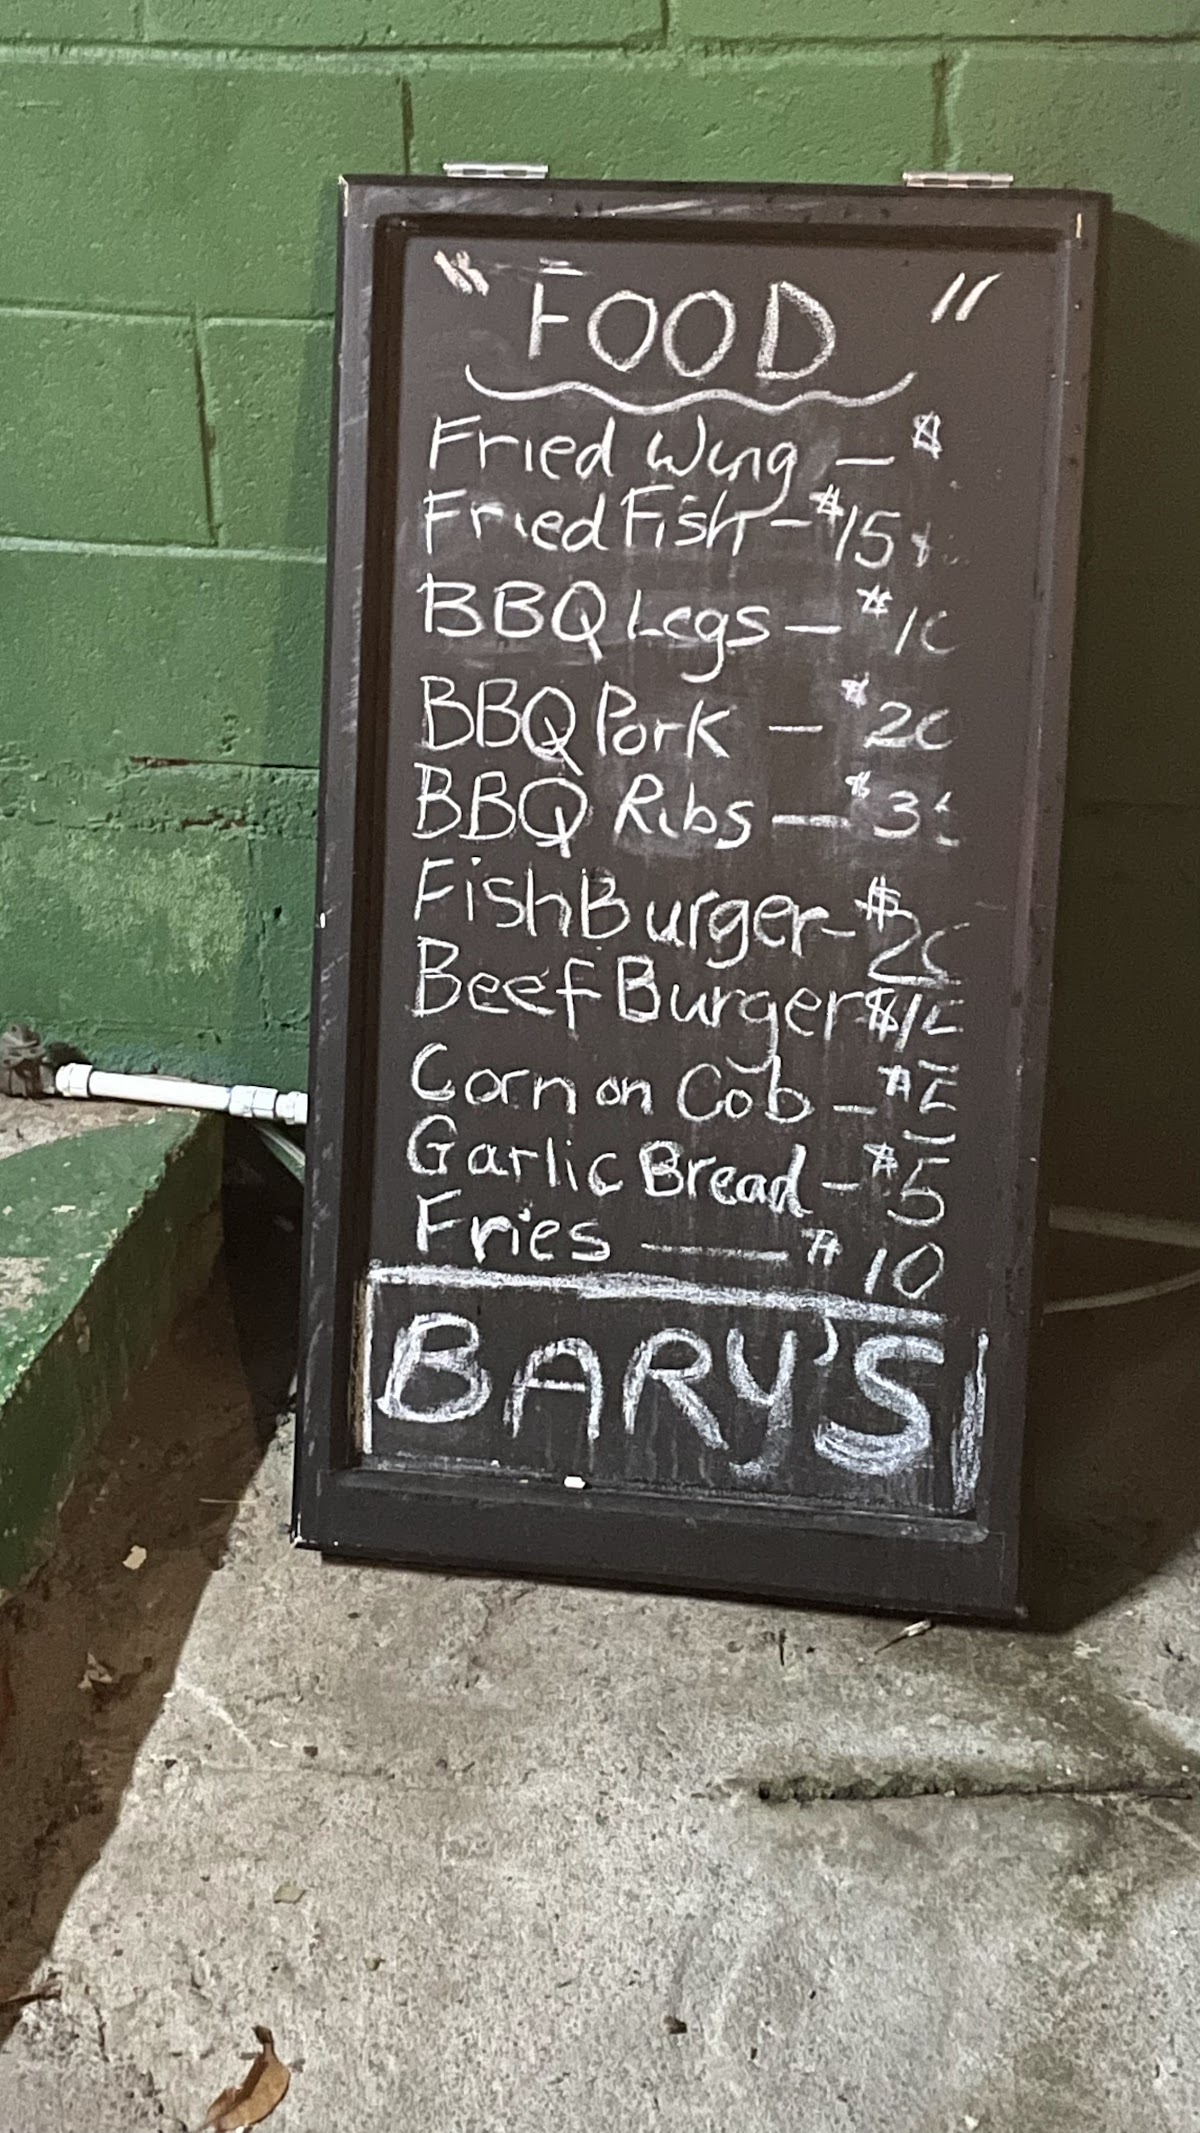 "FOOD"
Fried Wing — $
Fried Fish - $15
BBQ Legs — $10
BBQ Pork — $20
BBQ Ribs — $35
Fish Burger - $20
Beef Burger $15
Corn on Cob - $5
Garlic Bread - $5
Fries — $10
BARY'S